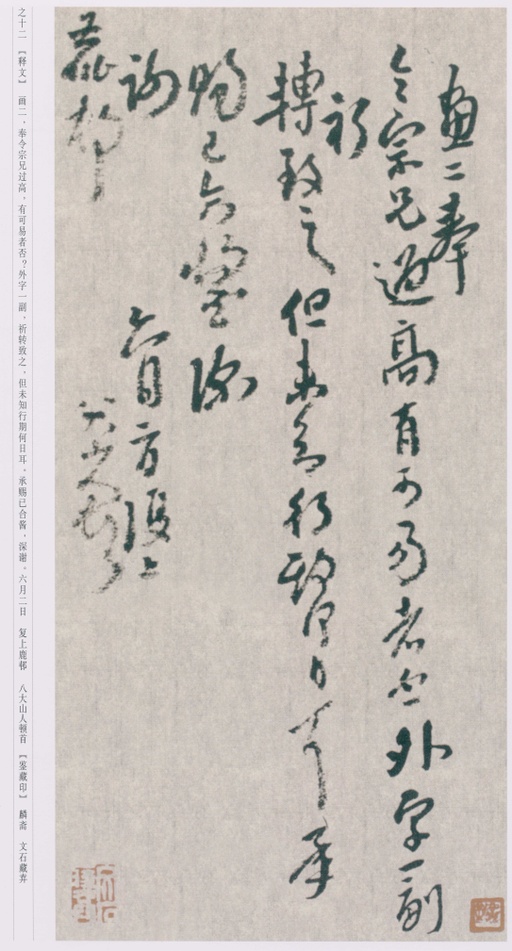 畫二奉
令宗兄過高有可易者否外字一副
祈
轉致之但未知行期何日耳承
賜已合醬深
謝 六月二日復上
鹿邨 八大山人頓首
之十二 【释文】 画二，奉令宗兄过高，有可易者否？外字一副，祈转致之，但未知行期何日耳，承赐已合酱，深谢。六月二日 复上鹿邨 八大山人顿首 【鉴藏印】 麟斋 文石藏弆